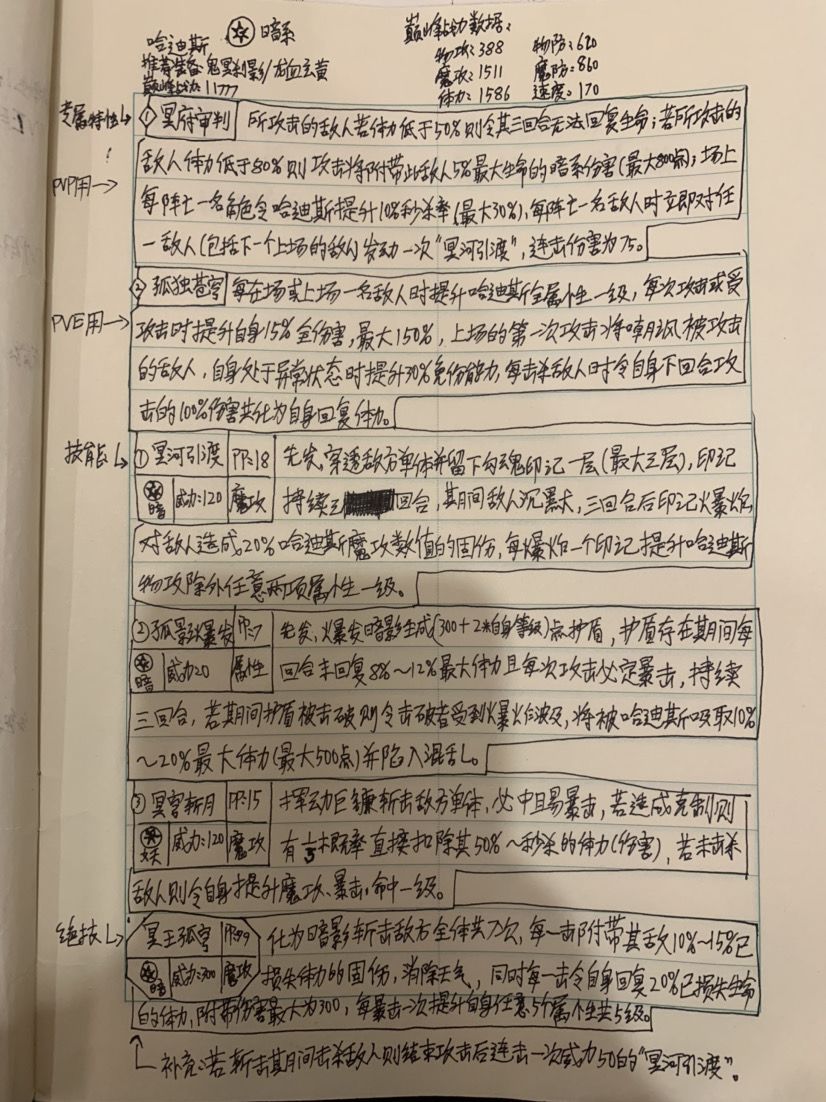 哈迪斯 暗系
推荐装备:鬼冥利影/龙血玄黄
巅峰战力:11777
巅峰战力数据:
物攻:388 物防:620
魔攻:1511 魔防:860
体力:1586 速度:170
专属特性
①冥府审判 所攻击的敌人若体力低于50%则令其三回合无法回复生命;若所攻击的
PVP用→
敌人体力低于80%则攻击将附带此敌人5%最大生命的暗系伤害(最大800点);场上
每阵亡一名角色令哈迪斯提升10%秒杀率(最大30%),每阵亡一名敌人时立即对任
一敌人(包括下一个上场的敌人)发动一次"冥河引渡",连击伤害为75。
②孤独苍穹 每在场或上场一名敌人时提升哈迪斯全属性一级,每次攻击或受
PVE用→
攻击时提升自身15%全伤害,最大150%,上场的第一次攻击将嘲讽被攻击
的敌人,自身处于异常状态时提升30%免伤能力,每击杀敌人时令自身下回合攻
击的100%伤害共化为自身回复体力。
技能
①冥河引渡 PP:18 先发,穿透敌方单体并留下勾魂印记一层(最大三层),印记
暗 威力:120 魔攻 持续三回合,其期间敌人沉默,三回合后印记爆炸
对敌人造成20%哈迪斯魔攻数值的固伤,每爆炸一个印记提升哈迪斯
物攻除外任意两项属性一级。
②孤影爆发 PP:7 先发,爆发暗影生成(300+2*自身等级)点护盾,护盾存在其期间每
暗 威力:0 属性 回合末回复8%~12%最大体力且每次攻击必定暴击,持续
三回合,若期间护盾被击破则令击破者受到爆炸波及,将被哈迪斯吸取10%
~20%最大体力(最大500点)并陷入混乱。
③冥宫斩月 PP:15 挥动巨镰斩击敌方单体,必中且易暴击,若造成克制则
妖 威力:120 魔攻 有1/3概率直接扣除其50%~秒杀的体力(伤害),若未击杀
敌人则令自身提升魔攻、暴击、命中一级。
绝技
冥王孤穹 PP:99 化为暗影斩击敌方全体共7次,每一击附带其敌10%~15%已
暗 威力:300 魔攻 损失体力的固伤,消除天气,同时每一击令自身回复20%已损失生命
的体力,附带伤害最大为300,每暴击一次提升自身任意5个属性共5级。
补充:若斩击其期间击杀敌人则结束攻击后连击一次威力50的"冥河引渡"。